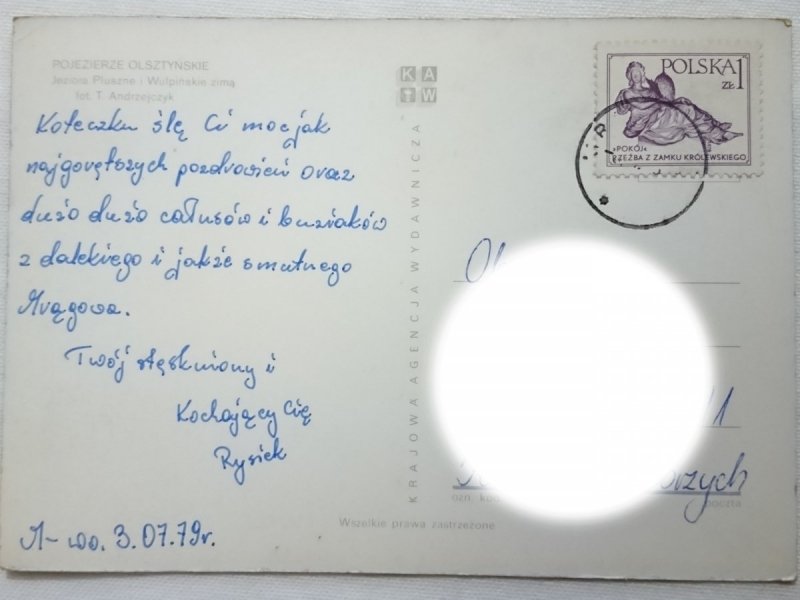 POJEZIERZE OLSZTYŃSKIE
Jeziora Pluszne i Wulpińskie zimą
fot. T. Andrzejczyk
Koteczku ślę Ci moc jak
najgorętszych pozdrowień oraz
dużo dużo całusów i buziaków
z dalekiego i jakże smutnego
Mrągowa.
Twój stęskniony i
Kochający Cię
Rysiek
M-wo. 3.07.79r.
KAW
KRAJOWA AGENCJA WYDAWNICZA
Wszelkie prawa zastrzeżone
POLSKA 1
ZŁ
»POKÓJ«
RZEŹBA Z ZAMKU KRÓLEWSKIEGO
11
ozn.
poczta